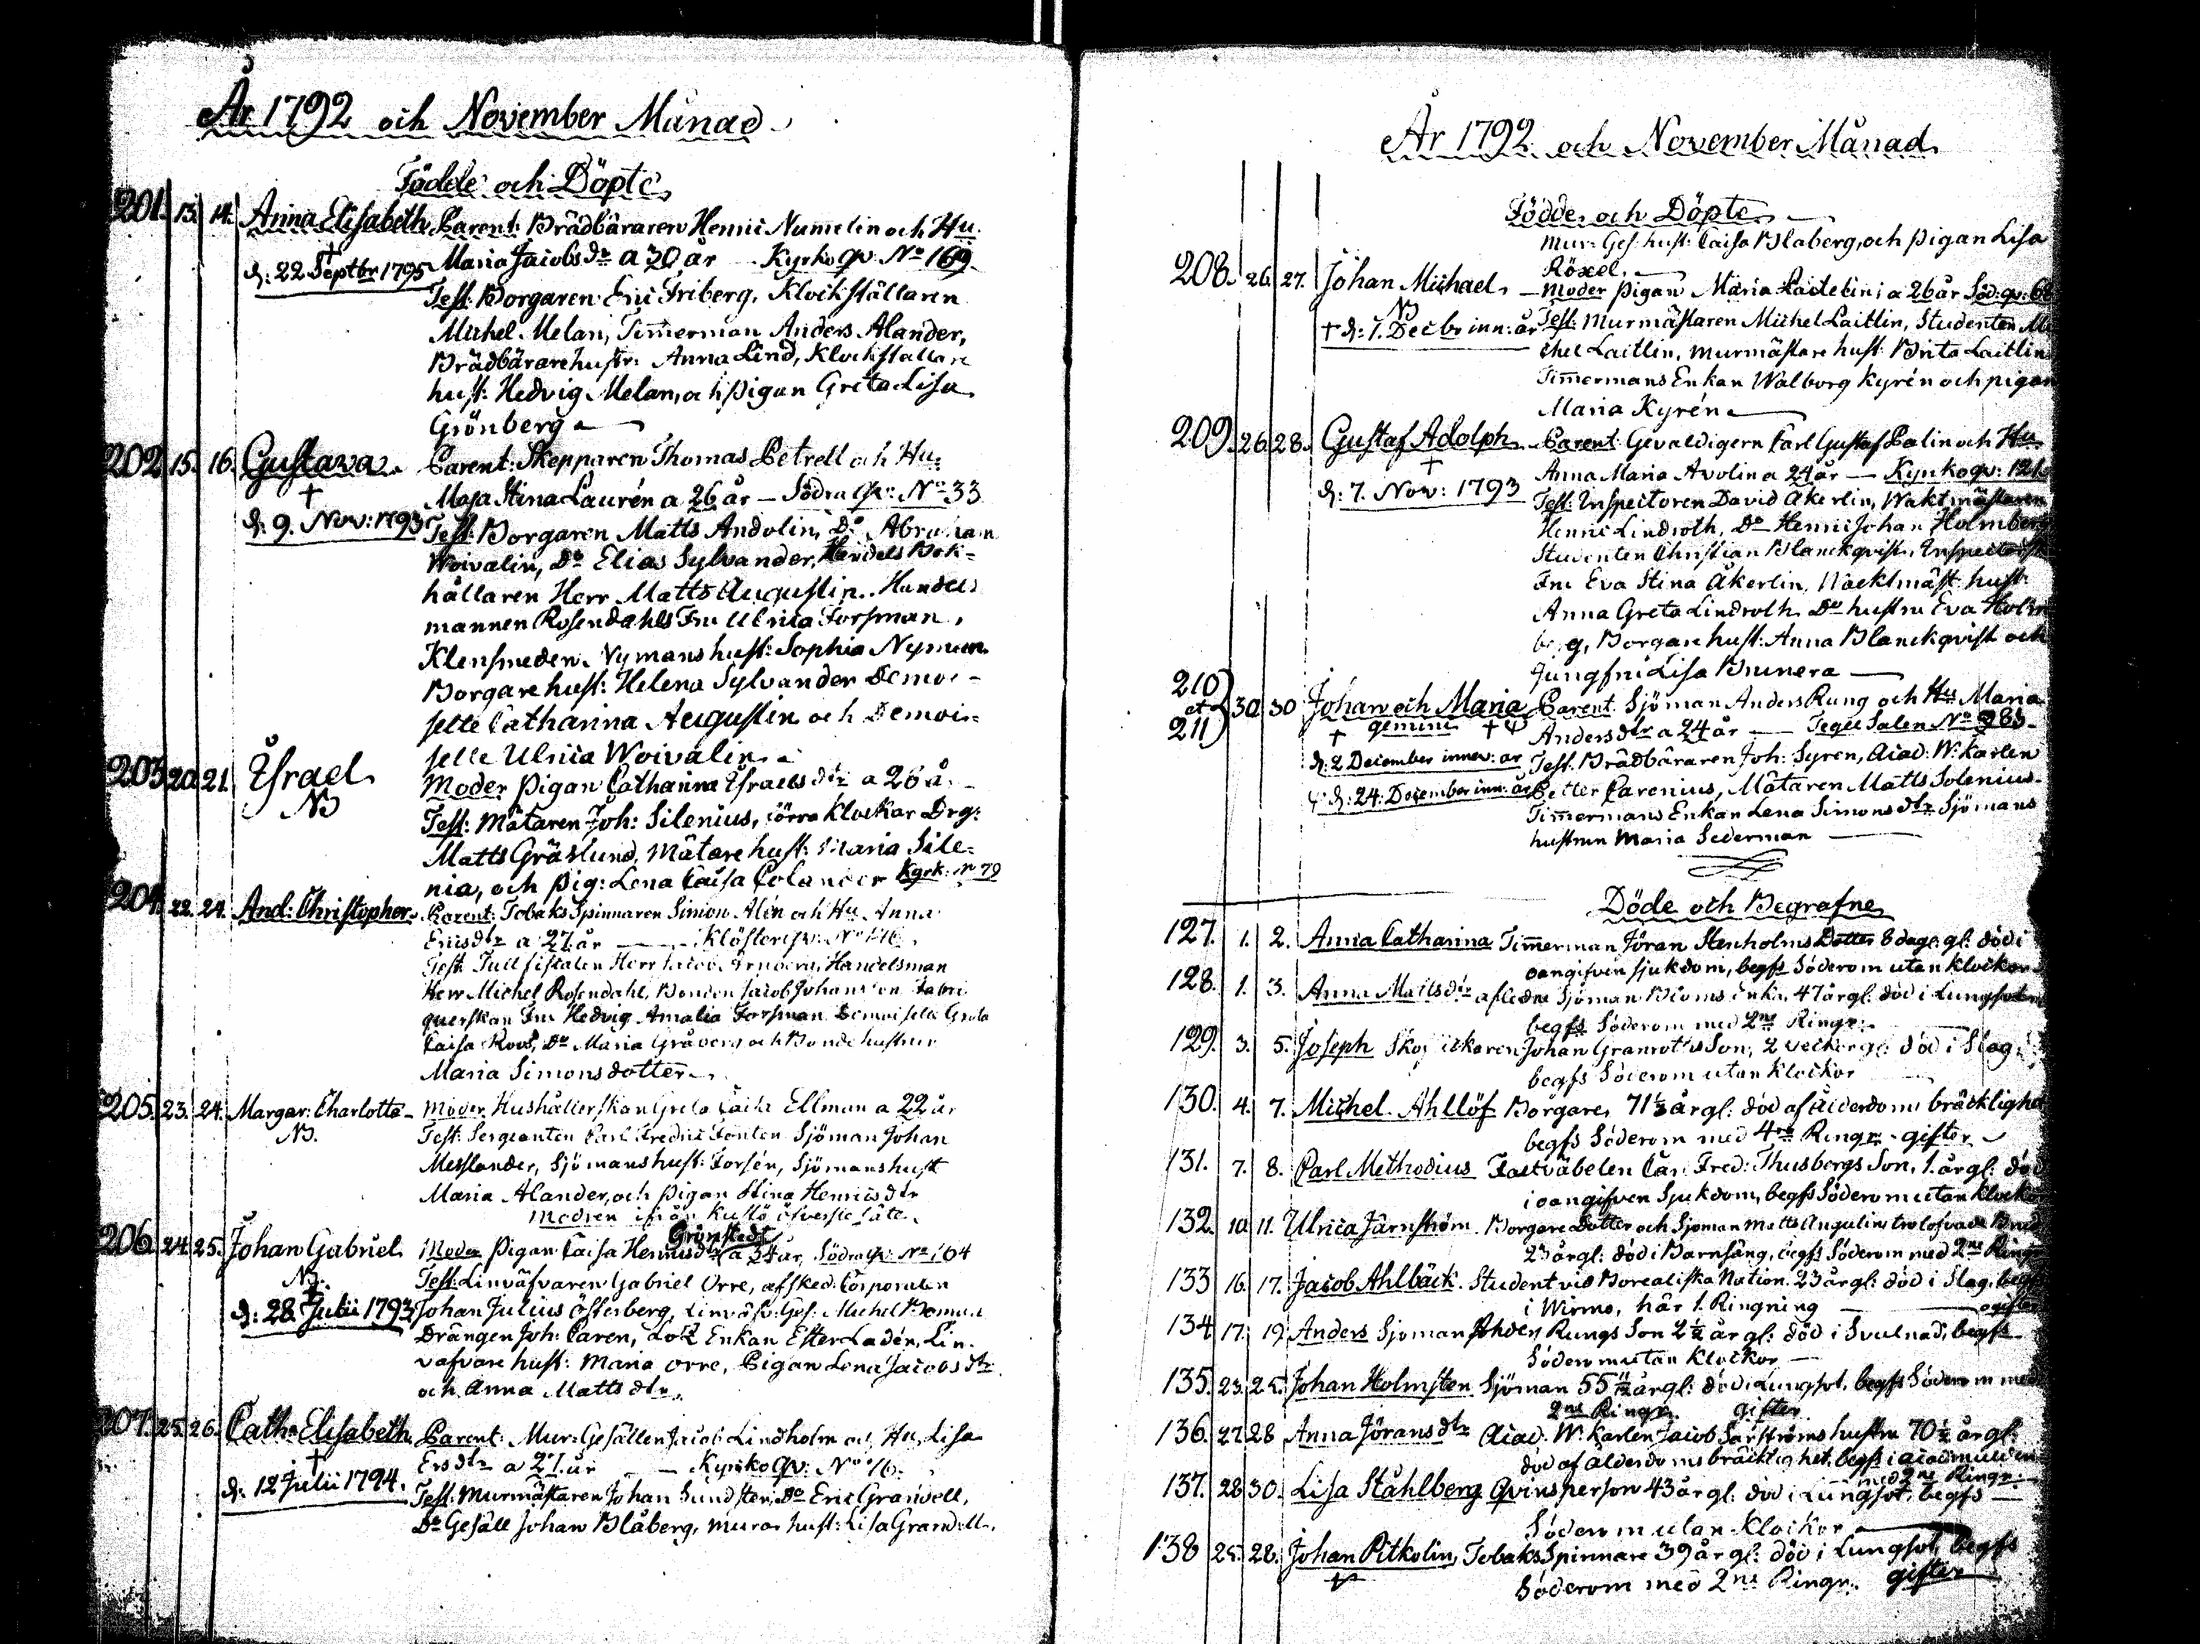 År 1792 och November Månad
Födde och Döpte
201. 13. 14. Anna Elisabeth Parent: Brädbäraren Henric Numelin och Hu.
Maria Jacobs dr a 30 år Kyrko qv: No 169.
† d: 22 Septbr 1795
Test: Borgaren Eric Friberg, Klockställaren
Michel Melan, Timmerman Anders Alander,
Brädbärarehustr: Anna Lind, Klockställare
hust: Hedvig Melan, och Pigan Greta Lisa
Grönberg
202 15. 16. Gustava Parent: Skepparen Thomas Petrell och Hu:
† Maja Stina Laurén a 26 år Södra qv: No 33
d: 9. Nov: 1793 Test: Borgaren Matts Andolin, Do Abraham
Woivalin, Do Elias Sylvander, Handels Bok-
hållaren Herr Matts Augustin. Handels
mannen Rosendahls Fru Ulrica Forsman,
Klensmeden Nymans hust: Sophia Nyman
Borgare hust: Helena Sylvander Demoi-
selle Catharina Augustin och Demoi-
selle Ulrica Woivalin.
203 20. 21. Israel Moder Pigan Catharina Israels dtr a 26 å.
NB Test: Mätaren Joh: Silenius, Klockar Drg:
Matts Gräslund, Mätare hust: Maria Sile-
nia, och Pig: Lena Caisa Polander Kyrk: No 79
204. 22. 24. And: Christopher Parent: Tobaks Spinnaren Simon Alén och Hu Anna
Ericsdtr a 27 år Kloster qv: No
Test: Tull fiskalen Herr Jacob Handelsman
Herr Michel Rosendahl, Bonden Jacob Johansson
querskan Fru Hedvig Amalia Forsman Demoiselle Greta
Caisa Roos, Do Maria Gråberg och Bonde hustrun
Maria Simonsdotter
205. 23. 24. Margar: Charlotta Moder Hushållerskan Greta Caisa Ellman a 22 år
NB. Test: Sergeanten Carl Fredric Fonten Sjöman Johan
Messlander, Sjömans hust: Forsén, Sjömans hust
Maria Alander, och Pigan Stina Henrics dtr
Modren ifrån Kustö
206. 24. 25. Johan Gabriel Moder Pigan Caisa Henricsdtr Grönstedt a 34 år, Södra qv: No 164
NB. Test: Linväfvaren Gabriel Orre, afsked: Corporalen
† d: 28. Julii 1793 Johan Julius Österberg, Linväfv: Ges: Michel
Drängen Joh: Caren, Enkan Ester Ladén, Lin-
väfvare hust: Maria Orre, Pigan Lena Jacobs dtr
och Anna Matts dtr.
207. 25. 26. Cath: Elisabeth Parent: Mur: Gesällen Jacob Lindholm och Hu, Lisa
† Ers dtr a 27 år Kyrko qv: No 76.
d: 12 Julii 1794. Test: Murmästaren Johan Sundsten, Do Eric Granvell,
Do Gesäll Johan Blåberg, murar hust: Lisa Granvell.
År 1792 och November Månad
Födde och Döpte
Mur: Ges: hust: Caisa Blåberg, och Pigan Lisa
Röxel.
208. 26. 27. Johan Michael Moder Pigan Maria a 26 år Söd: qv:
NB † d: 1. Decbr inn: år Test: Murmästaren Michel Laitlin, Studenten Mi
chel Laitlin, murmästare hust: Brita Laitlin
Timmermans Enkan Walborg Kyrén och pigan
Maria Kyrén
209. 26 28. Gustaf Adolph Parent: Gevaldigern Carl Gustaf Palin och Hu
† Anna Maria Avolin a 24 år Kyrko qv:
d: 7. Nov: 1793 Test: Inspectoren David Åkerlin, Waktmästaren
Henric Lindroth, Do Henric Johan Holmberg
Studenten Christian Blanckqvist, Inspectorsk
Fru Eva Stina Åkerlin, Wacktmäst: hust:
Anna Greta Lindroth Do hustru Eva Holm
berg, Borgare hust: Anna Blanckqvist och
Jungfru Lisa Brunera
210 et 211 30 30 Johan och Maria Parent Sjöman Anders Rung och Hu Maria
gemini Anders dtr a 24 år Tegel Salen No 283.
d: 2 December innev: år Test: Brädbäraren Joh: Syren, Acad: W: karlen
d: 24. December inn: år Petter Carenius, Mätaren Matts Solenius.
Timmermans Enkan Lena Simons dtr Sjömans
hustrun Maria Sederman
Döde och Begrafne
127. 1. 2. Anna Catharina Timmerman Jöran Stenholms Dotter 8 dag: gl: död i
oangifven sjukdom, begfs Söderom utan klockor
128. 1. 3. Anna Matts dtr afledne Sjöman Bloms enka, 47 år gl: död i Lungsoten
begfs Söderom med 2ne Ringr.
129. 3. 5. Joseph Johan Granroths Son, 2 veckor gl: död i Slag:
begfs Söderom utan klockor
130. 4. 7. Michel Ahllöf Borgare, 71 ½ år gl: död af ålderdoms bräcklighet
begfs Söderom med 4ra Ringr. gifter
131. 7. 8. Carl Methodius Faltväbelen Carl Fred: Thusbergs Son, 1. år gl: död
i oangifven Sjukdom, begfs Söderom utan klockor
132. 10. 11. Ulrica Järnström Borgare Dotter och Sjöman Matts Angulins trolofvade Brud
23 år gl: död i Barnsäng, begfs Söderom med 2ne Ringr
133 16. 17. Jacob Ahlbäck. Student vid Borealiska Nation. 23 år gl: död i Slag, begfs
i Wirmo, här 1. Ringning ogifter
134 17. 19. Anders Sjöman Anders Rungs Son 2 ½ år gl: död i Svulnad, begfs
Söderom utan klockor
135. 23. 25. Johan Holmsten Sjöman 55 11/12 år gl: död i Lungsot, begfs Söderom med
2ne Ringr. gifter
136. 27. 28 Anna Jörans dtr Acad: W: karlen Jacob Särströms hustru 70 ½ år gl:
död af ålderdoms bräcklighet, begfs i
med 2ne Ringr:
137. 28 30. Lisa Ståhlberg Qvinsperson 43 år gl: död i Lungsot, begfs
Söderom utan klockor
138 25. 28. Johan Pitkolin, Tobaks Spinnare 39 år gl: död i Lungsot, begfs
Söderom med 2ne Ringr. gifter